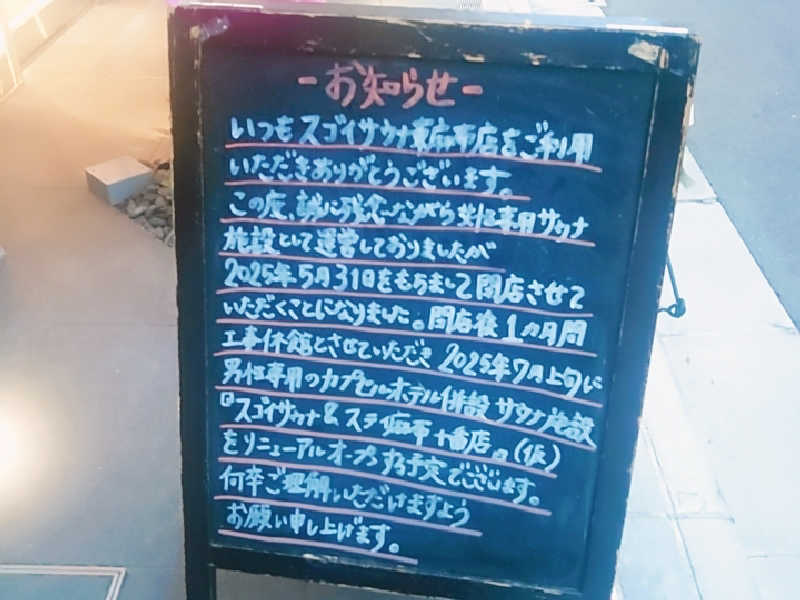 -お知らせ-
いつもスゴイサウナ東麻布店をご利用
いただきありがとうございます。
この度、誠に残念ながら女性専用サウナ
施設として運営しておりましたが
2025年5月31日をもちまして閉店させて
いただくことになりました。閉店後1カ月間
工事休館とさせていただき 2025年7月上旬に
男性専用のカプセルホテル併設 サウナ施設
『スゴイサウナ&ステイ麻布十番店』(仮)
をリニューアルオープンする予定でございます。
何卒ご理解いただけますよう
お願い申し上げます。